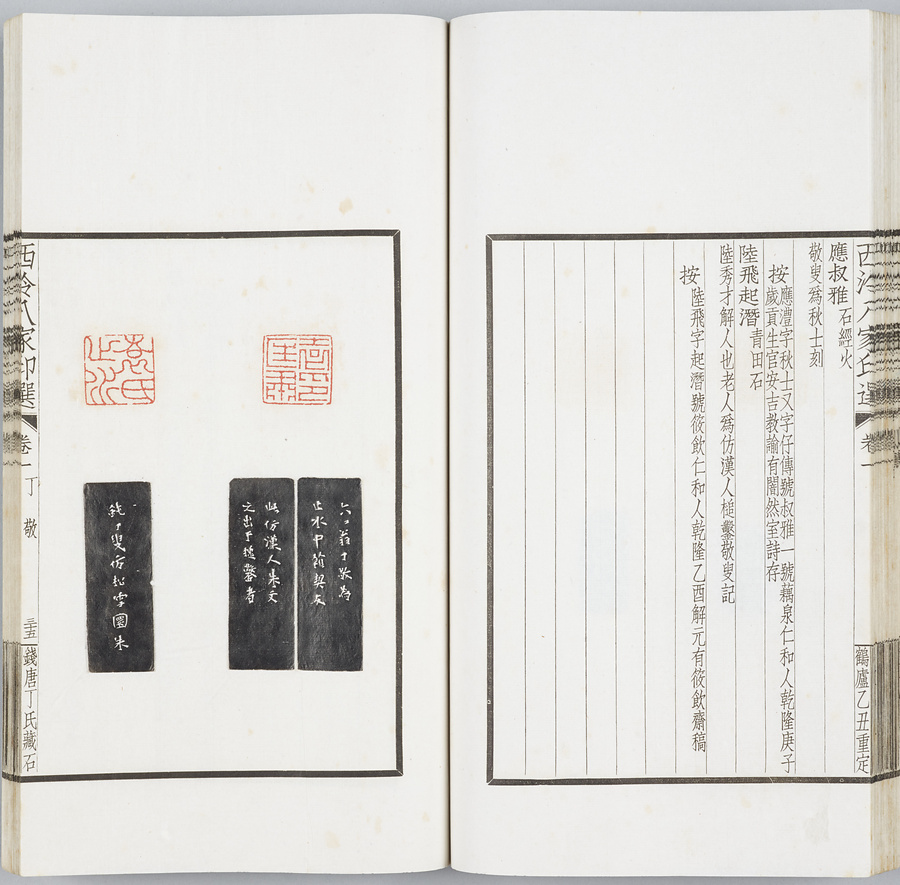 西泠八家印選
卷一
鶴廬乙丑重定
應叔雅 石經火
敬叟爲秋士刻
按應澧字秋士又字仔傳號叔雅一號藕泉仁和人乾隆庚子
歲貢生官安吉教諭有闇然室詩存
陸飛起潛 青田石
陸秀才解人也老人爲仿漢人槌鑿敬叟記
按陸飛字起潛號筱飲仁和人乾隆乙酉解元有筱飲齋稿
六〻翁丁敬爲
止水中翰契友
此仿漢人朱文
之出于槌鑿者
袁氏
止水
鈍丁叟仿松雪圓朱
西泠八家印選
卷一 丁敬
三五
錢唐丁氏藏石